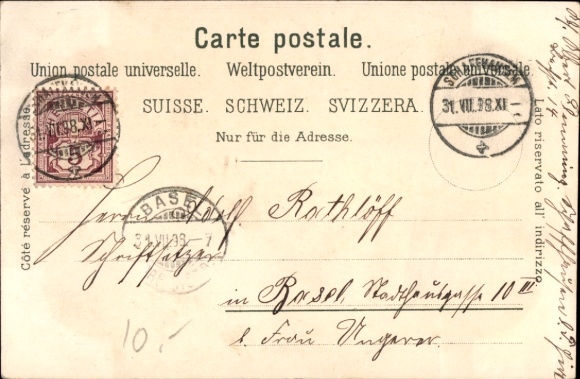 Carte postale.
Union postale universelle. Weltpostverein. Unione postale universale.
SUISSE. SCHWEIZ. SVIZZERA.
Nur für die Adresse.
Côté réservé à l'adresse.
Lato riservato all' indirizzo.
SCHAFFHAUSEN
31.VII.98.XI-
98.XI
5
BASEL
31.VII.98.-7
Herrn Adolf Rathlöff
Schriftsetzer
in Basel, Stadthausgasse 10 III
b. Frau Ungerer.
10.-